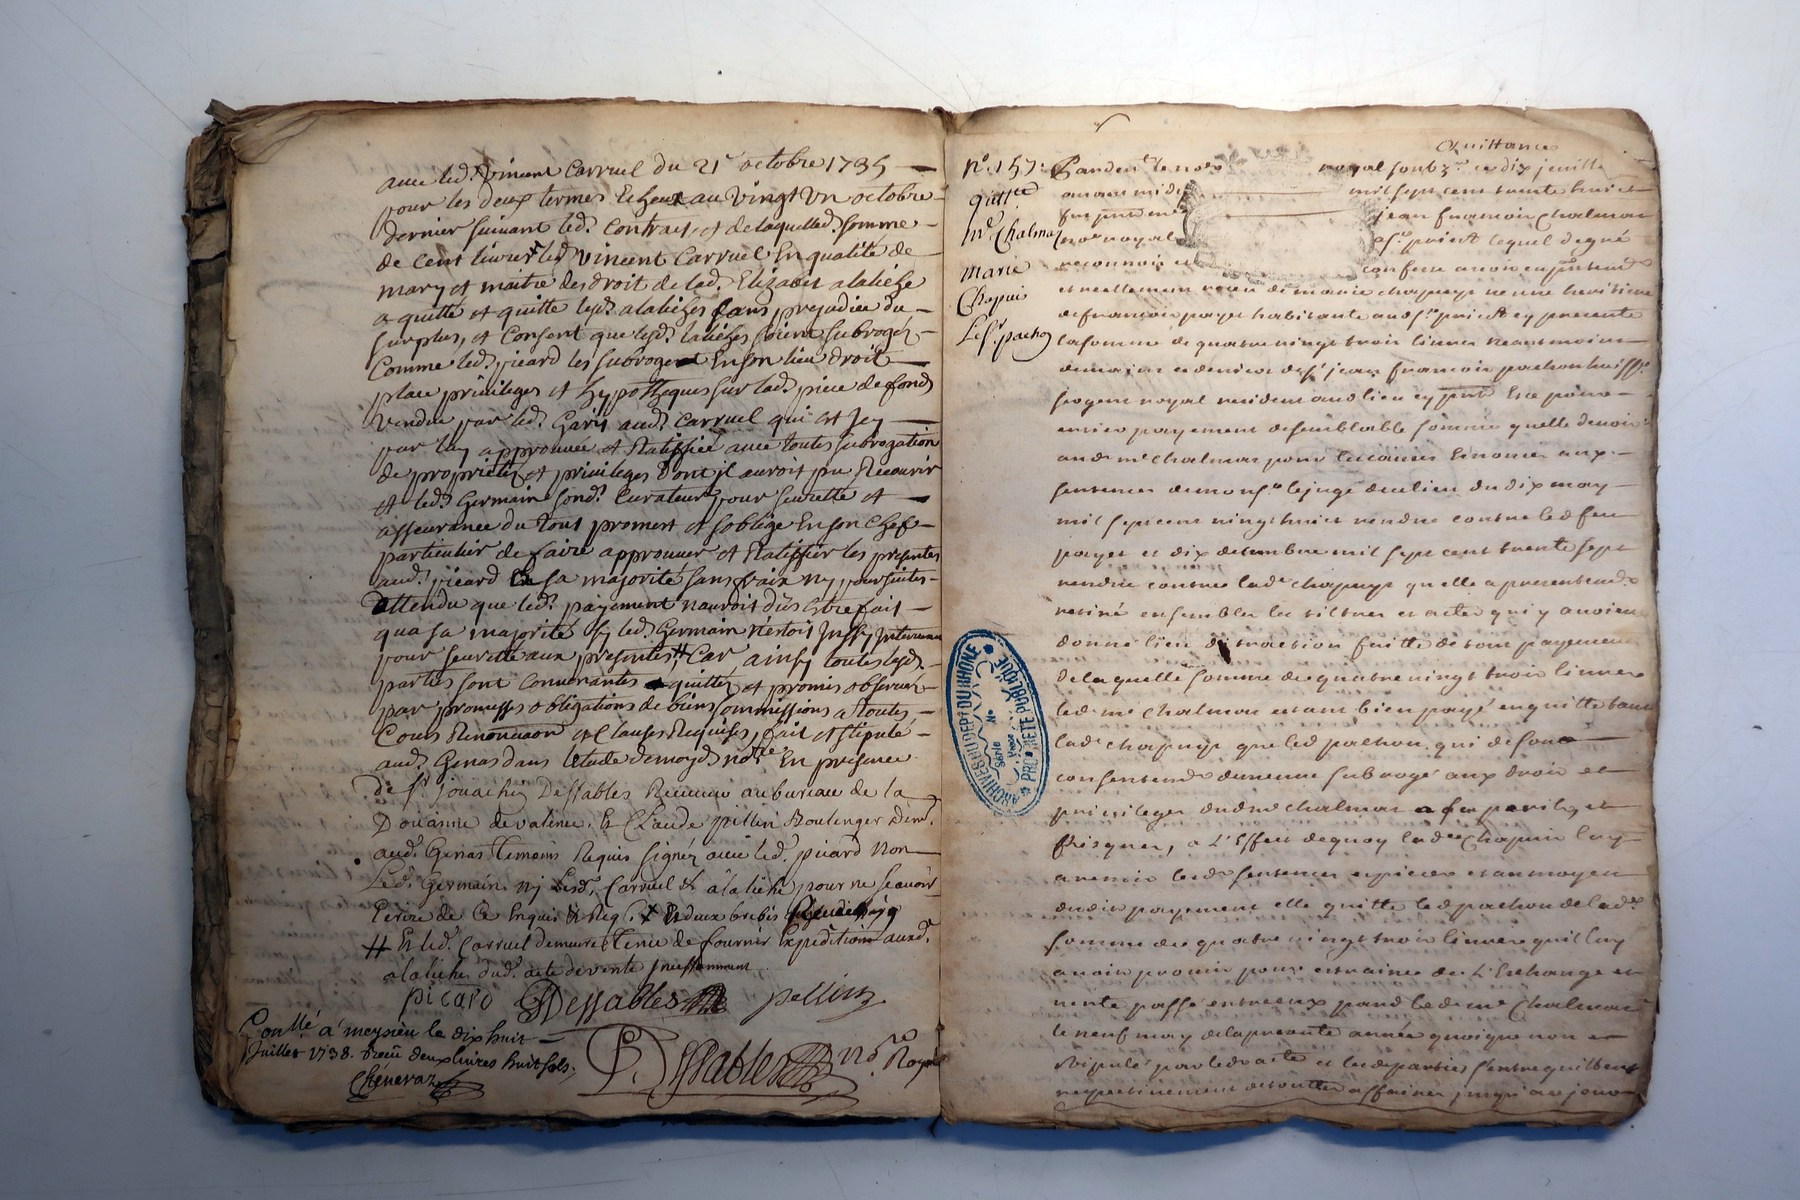 avec led.t Vincent Carruel du 21e octobre 1735
pour les deux termes Echeux au Vingt Un octobre
dernier suivant led.t Contrat, et delaquelled.e somme
de cent livres led.t Vincent Carruel En qualité de
mary et maitre des droit de lad.e Elizabet alaliéze
a quitté et quitte lesd.s alaliéges sans prejudice du
surplus, et Consent que lesd.s laliéges soient subrogez
Comme led.t picard les subroge En son lieu droit
place privileges et hypotheques sur lad.e piece de fonds
Vendue par led.t Garit aud.t Carruel qui
par luy approuvée et Ratiffiée avec toutes subrogation
de proprietéz et privileges Dont il auroit pu Recourir
et led.t Germain sond.t Curateur pour seurette et
asseurance du tout promert et soblige En son Chef
particulier de faire approuver et Ratiffier les presentes
aud.t picard a sa majorité sans fraix ny poursuites
attendu que led.t payement nauroit dus Estre fait
qua sa majorité sy led.t Germain n'estoit Intervenu
pour seurette aux presentes # Car ainsy toutes lesd.s
parties sont Convenantes quittéz et promis observer
par promesses obligations de biens soumissions a toutes
Cours Renonciaon et Clauses Requises, fait et stipulé
aud.t Genas dans létude de moyd.t not.re En presence
de s.r jouachin Dessables Receveur au bureau de la
Doüanne de valence, Et Claude pellin Boulenger dem.t
aud.t Genas temoins Requis signéz avec led.t picard Non
Led.t Germain ny lesd.s Carruel & alaliche pour ne sçavoir
Ecrire de Ce Enquis & Req.s X Et deux brebis
# Et led.t Carruel demeure tenu de fournir Expedition auxd.s
alaliches dud.t acte de vente Incessamment
picard Dessables pellin
Conllé a meysieu le dix huit
Juillet 1738. Receu deux livres huit sols
Chéneraz
Dessables No.re Royal
Quittance
N.o 157.
quitt.ce
M.e Chalmas
marie
Chapuis
Le s.r pachod
Pardevt le no.re royal soub.né ce dix jeuille
avant midi mil sept cent trente huict
fut pnt me jean francois Chalmas
no.re royal s.t priest lequel de gré
reconnoit et confesse avoir eu presentemt
et reellement receu de marie chapuys veuve heritiere
de francois payet habitante aud s.t priest cy presente
la somme de quatre vingt trois livres neantmoins
des mains et deniers de s.r jean francois pachon huiss.r
sergent royal resident aud lieu cy pnt Et ce pour
entier payement de semblable somme quelle devoit
aud me chalmas pour les causes Enoncées aux
sentences de mons.r le juge dud lieu du dix may
mil sept cent vingt huict rendue contre led feu
payet et dix decembre mil sept cent trente sept
rendue contre lad.e chapuys quelle a presentemt
retiré ensembles les tiltres et actes qui y avoient
donné lieu distraction faitte de tout payement
de laquelle somme de quatre vingt trois livres
led me chalmas estant bien payé en quitte tant
lad.e chapuys que led pachon qui de son
consentemt demeure subrogé aux droit et
privileges dud me chalmas a ses perils et
frisques, a L'Effect de quoy lad.e Chapuis luy
a remis lesd.s sentences et pieces et au moyen
dudit payement elle quitte led pachon de lad.e
somme de quatre vingt trois livres quil luy
avoit promis pour estraines de L'Echange et
vente passé entre eux pard led me Chalmas
le neuf may de la presente année quoique non
stipulé par led acte et lesd parties sentrequittent
respectivement de touttes affaires jusqu'a ce jour
ARCHIVES DU DEPT DU RHÔNE
PROPRIETE PUBLIQUE
Série
No
Pièce